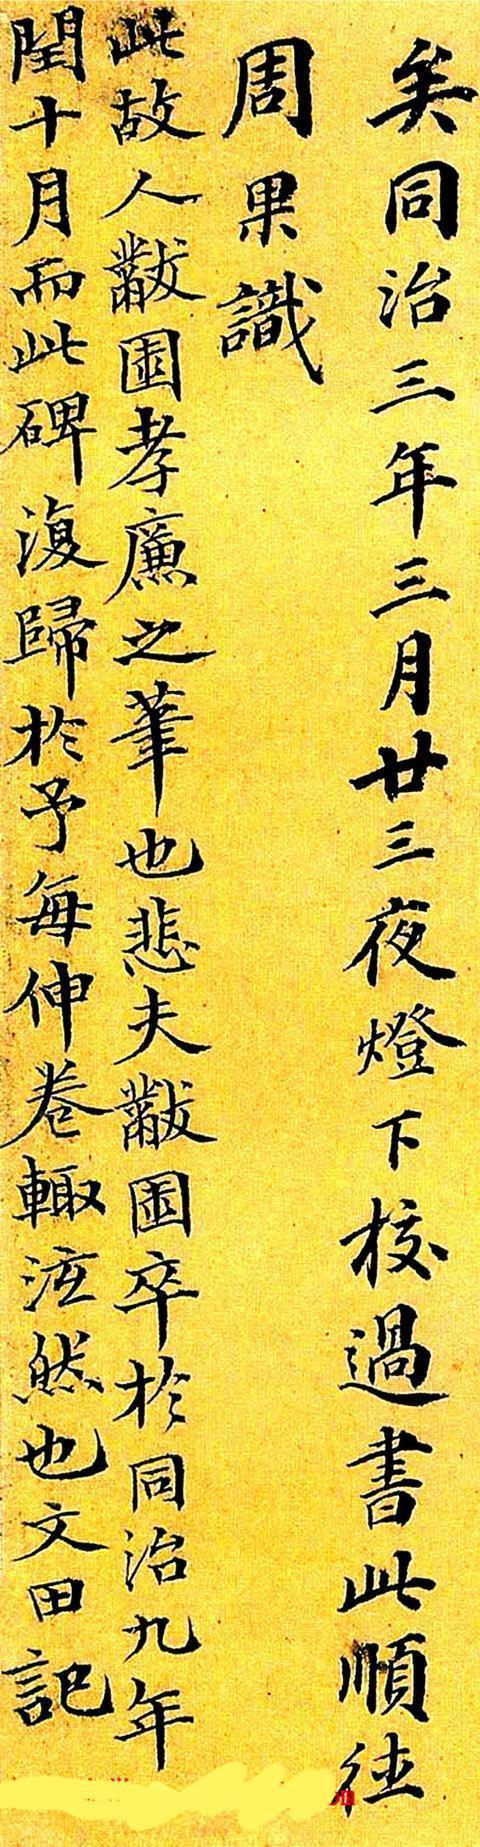 矣同治三年三月廿三夜燈下校過書此順德
周果識
此故人黻園孝廉之筆也悲夫黻園卒於同治九年
閏十月而此碑復歸於予每伸卷輒泫然也文田記